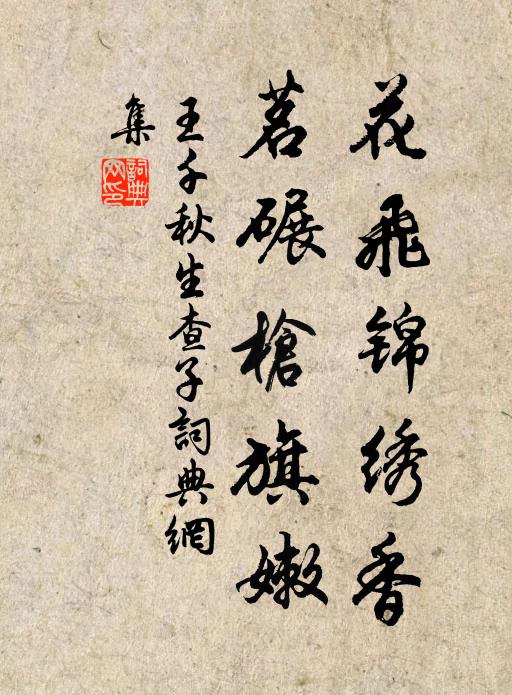 花飛锦绣香
茗碾槍旗嫩
王千秋生查子詞典網
集
詞典
网印